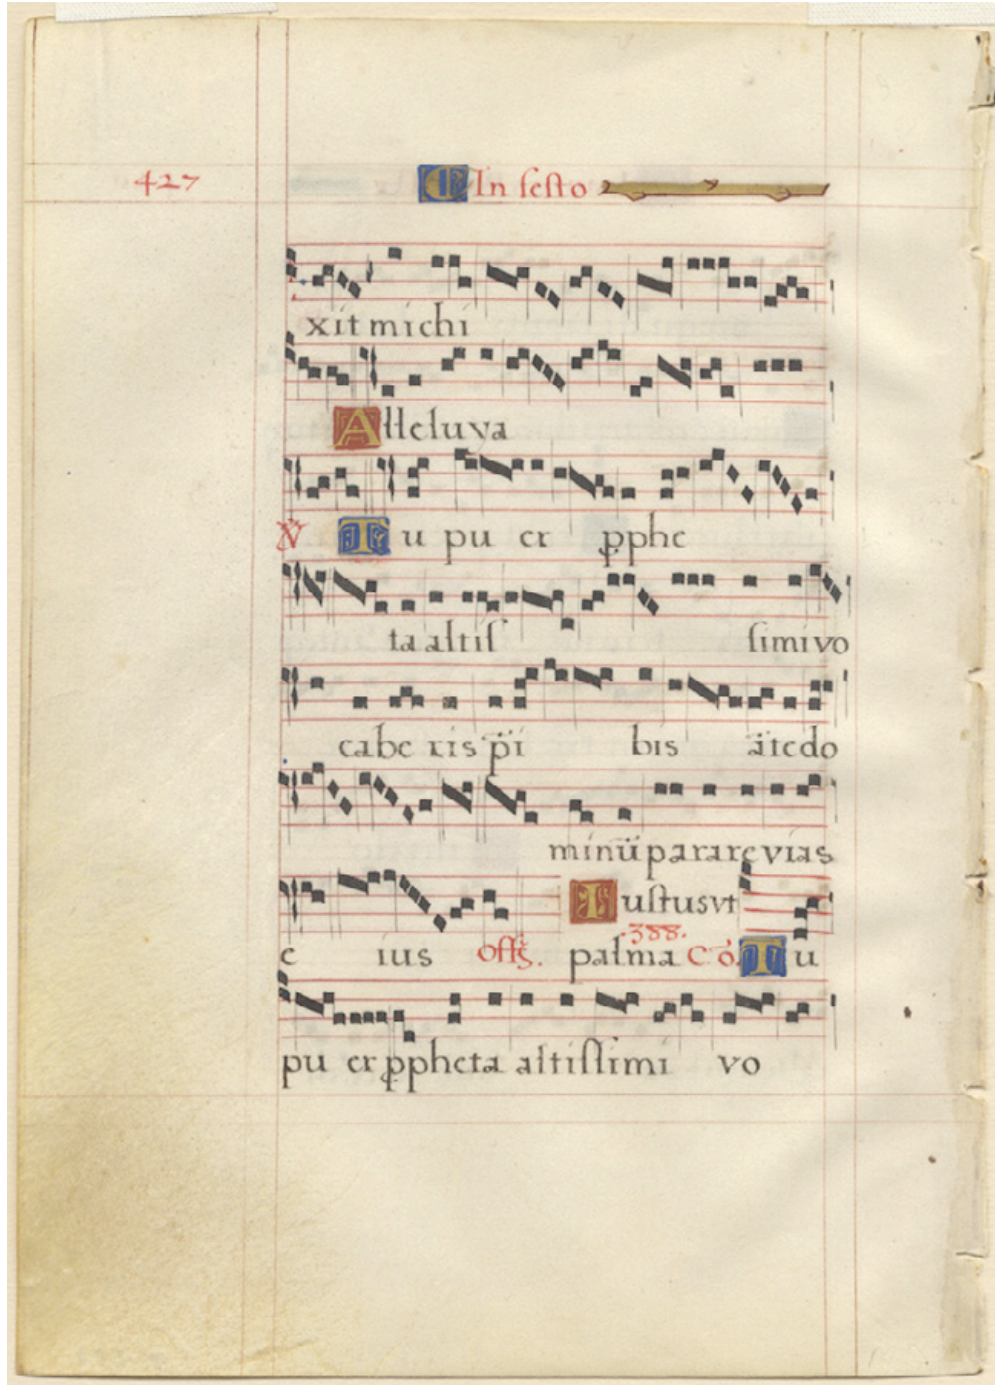 427
In festo
xit michi
Alleluya
℣ Tu pu er ꝓphe
ta altis simi vo
cabe ris p̄i bis āte do
minū parare vias
Iustus vt
e ius palma Cō. Tu
.388.
pu er ꝓpheta altissimi vo